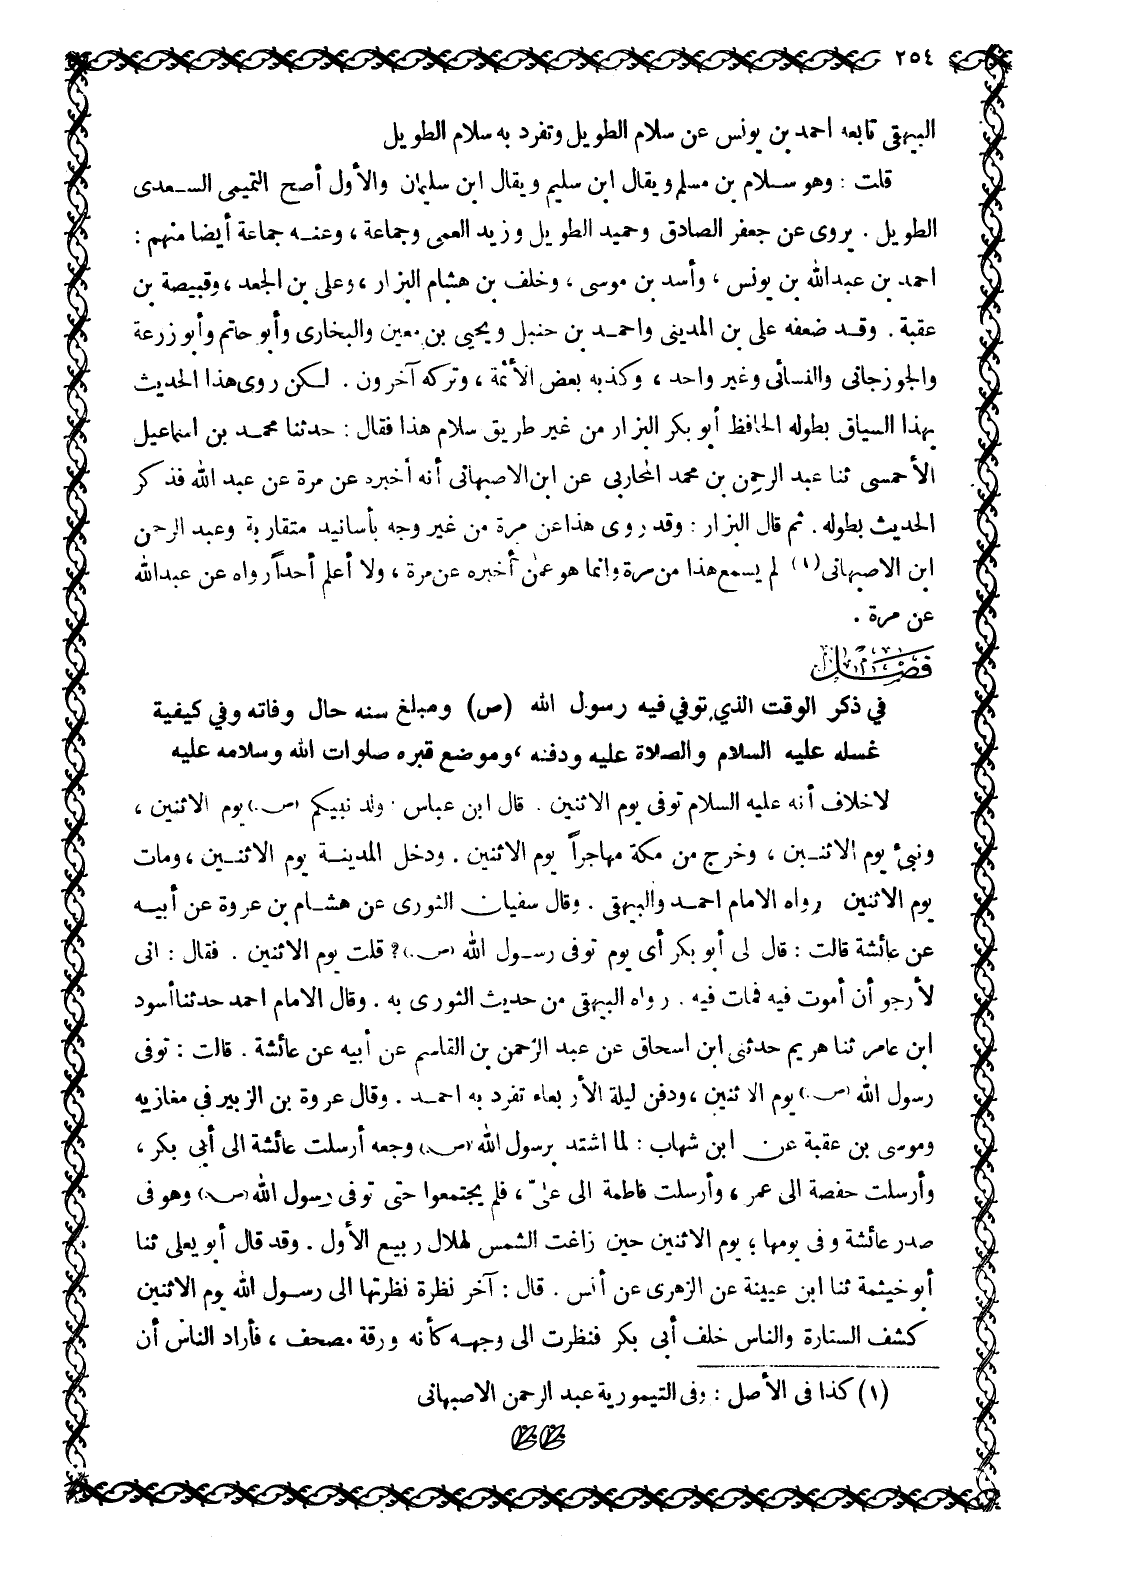 ٢٥٤
البيهقى تابعه احمد بن يونس عن سلام الطويل وتفرد به سلام الطويل
قلت : وهو سلام بن مسلم ويقال ابن سليم ويقال ابن سليمان والأول أصح التميمى السعدى
الطويل . يروى عن جعفر الصادق وحميد الطويل وزيد العمى وجماعة ، وعنه جماعة أيضا منهم :
احمد بن عبدالله بن يونس ، وأسد بن موسى ، وخلف بن هشام البزار ، وعلى بن الجعد ، وقبيصة بن
عقبة . وقد ضعفه على بن المدينى واحمد بن حنبل ويحيى بن معين والبخارى وأبو حاتم وأبو زرعة
والجوزجانى والنسائى وغير واحد ، وكذبه بعض الأئمة ، وتركه آخرون . لكن روى هذا الحديث
بهذا السياق بطوله الحافظ أبو بكر البزار من غير طريق سلام هذا فقال : حدثنا محمد بن اسماعيل
الأحمسى ثنا عبد الرحمن بن محمد المحاربى عن ابن الاصبهانى أنه أخبره عن مرة عن عبد الله فذكر
الحديث بطوله . ثم قال البزار : وقد روى هذا عن مرة من غير وجه بأسانيد متقاربة وعبد الرحمن
ابن الاصبهانى (١) لم يسمع هذا من مرة وانما هو عمن أخبره عن مرة ، ولا أعلم أحداً رواه عن عبدالله
عن مرة .
فصل
في ذكر الوقت الذي توفي فيه رسول الله (ص) ومبلغ سنه حال وفاته وفي كيفية
غسله عليه السلام والصلاة عليه ودفنه ، وموضع قبره صلوات الله وسلامه عليه
لاخلاف أنه عليه السلام توفى يوم الاثنين . قال ابن عباس . ولد نبيكم (ص) يوم الاثنين ،
ونبئ يوم الاثنين ، وخرج من مكة مهاجراً يوم الاثنين . ودخل المدينة يوم الاثنين ، ومات
يوم الاثنين رواه الامام احمد والبيهقى . وقال سفيان الثورى عن هشام بن عروة عن أبيه
عن عائشة قالت : قال لى أبو بكر أى يوم توفى رسول الله (ص) ? قلت يوم الاثنين . فقال : انى
لأرجو أن أموت فيه فمات فيه . رواه البيهقى من حديث الثورى به . وقال الامام احمد حدثنا أسود
ابن عامر ثنا هريم حدثنى ابن اسحاق عن عبد الرحمن بن القاسم عن أبيه عن عائشة . قالت : توفى
رسول الله (ص) يوم الاثنين ، ودفن ليلة الأربعاء تفرد به احمد . وقال عروة بن الزبير في مغازيه
وموسى بن عقبة عن ابن شهاب : لما اشتد برسول الله (ص) وجعه أرسلت عائشة الى أبى بكر ،
وأرسلت حفصة الى عمر ، وأرسلت فاطمة الى علىّ ، فلم يجتمعوا حتى توفى رسول الله (ص) وهو فى
صدر عائشة وفى يومها ؛ يوم الاثنين حين زاغت الشمس لهلال ربيع الأول . وقد قال أبو يعلى ثنا
أبو خيثمة ثنا ابن عيينة عن الزهرى عن أنس . قال : آخر نظرة نظرتها الى رسول الله يوم الاثنين
كشف الستارة والناس خلف أبى بكر فنظرت الى وجهه كأنه ورقة مصحف ، فأراد الناس أن
(١) كذا فى الأصل : وفى التيمورية عبد الرحمن الاصبهانى